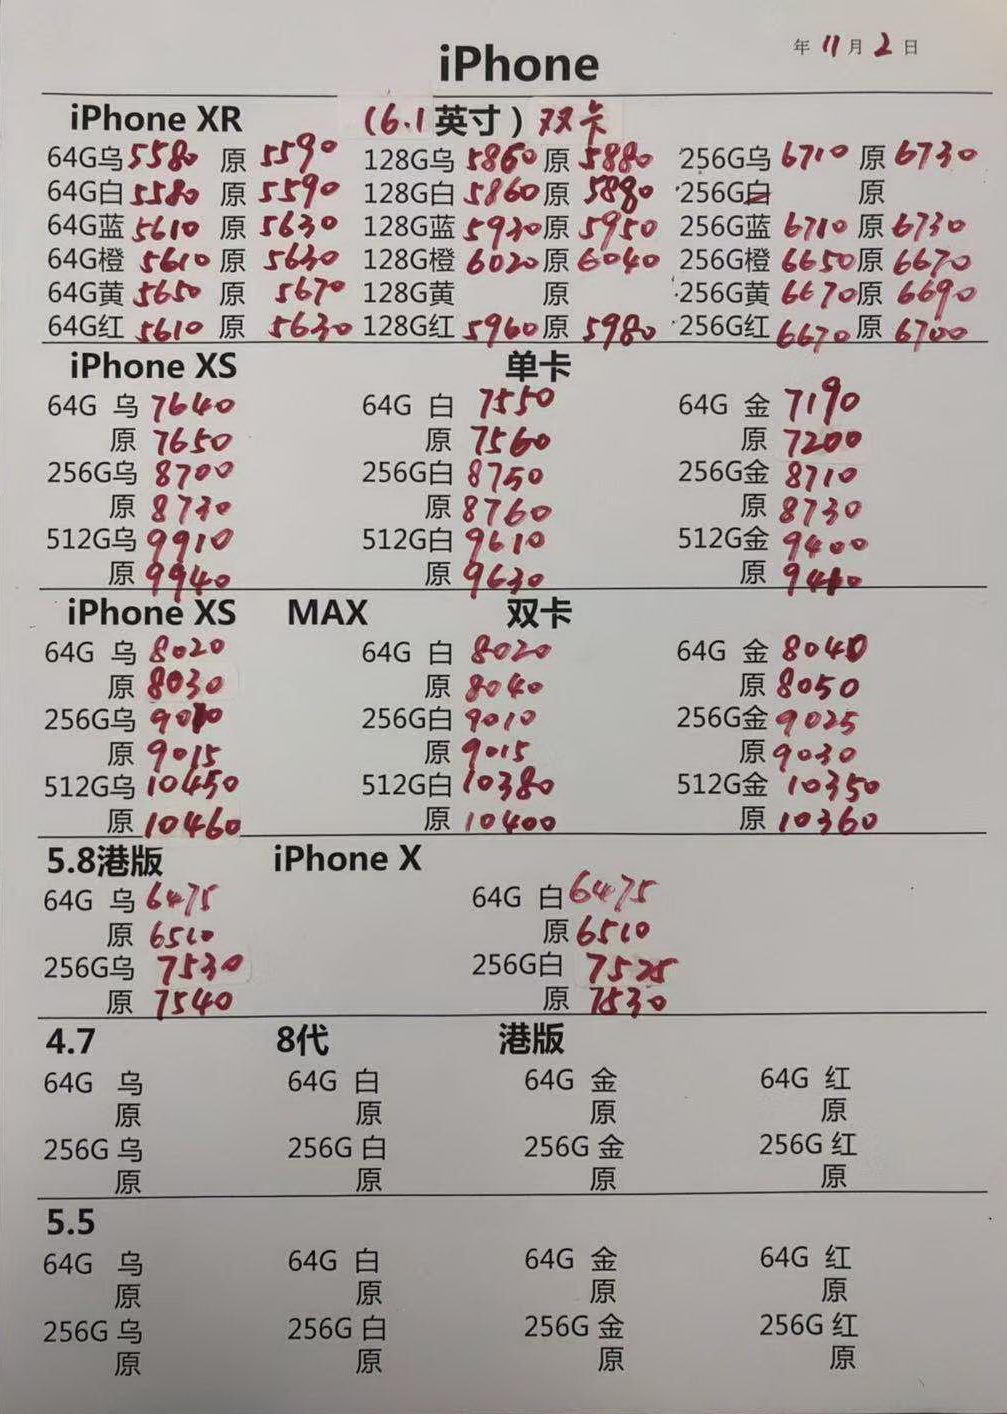 年 11 月 2 日
iPhone
iPhone XR (6.1英寸) 双卡
64G乌 5580 原 5590 128G乌 5860 原 5880 256G乌 6710 原 6730
64G白 5580 原 5590 128G白 5860 原 5880 256G白 原
64G蓝 5610 原 5630 128G蓝 5930 原 5950 256G蓝 6710 原 6730
64G橙 5610 原 5630 128G橙 6020 原 6040 256G橙 6650 原 6670
64G黄 5650 原 5670 128G黄 原 256G黄 6670 原 6690
64G红 5610 原 5630 128G红 5960 原 5980 256G红 6670 原 6700
iPhone XS 单卡
64G 乌 7640 64G 白 7550 64G 金 7190
原 7650 原 7560 原 7200
256G乌 8700 256G白 8750 256G金 8710
原 8730 原 8760 原 8730
512G乌 9910 512G白 9610 512G金 9400
原 9940 原 9630 原 9410
iPhone XS MAX 双卡
64G 乌 8020 64G 白 8020 64G 金 8040
原 8030 原 8040 原 8050
256G乌 9010 256G白 9010 256G金 9025
原 9015 原 9015 原 9030
512G乌 10450 512G白 10380 512G金 10350
原 10460 原 10400 原 10360
5.8港版 iPhone X
64G 乌 6475 64G 白 6475
原 6510 原 6510
256G乌 7530 256G白 7525
原 7540 原 7530
4.7 8代 港版
64G 乌 64G 白 64G 金 64G 红
原 原 原 原
256G 乌 256G 白 256G 金 256G 红
原 原 原 原
5.5
64G 乌 64G 白 64G 金 64G 红
原 原 原 原
256G 乌 256G 白 256G 金 256G 红
原 原 原 原